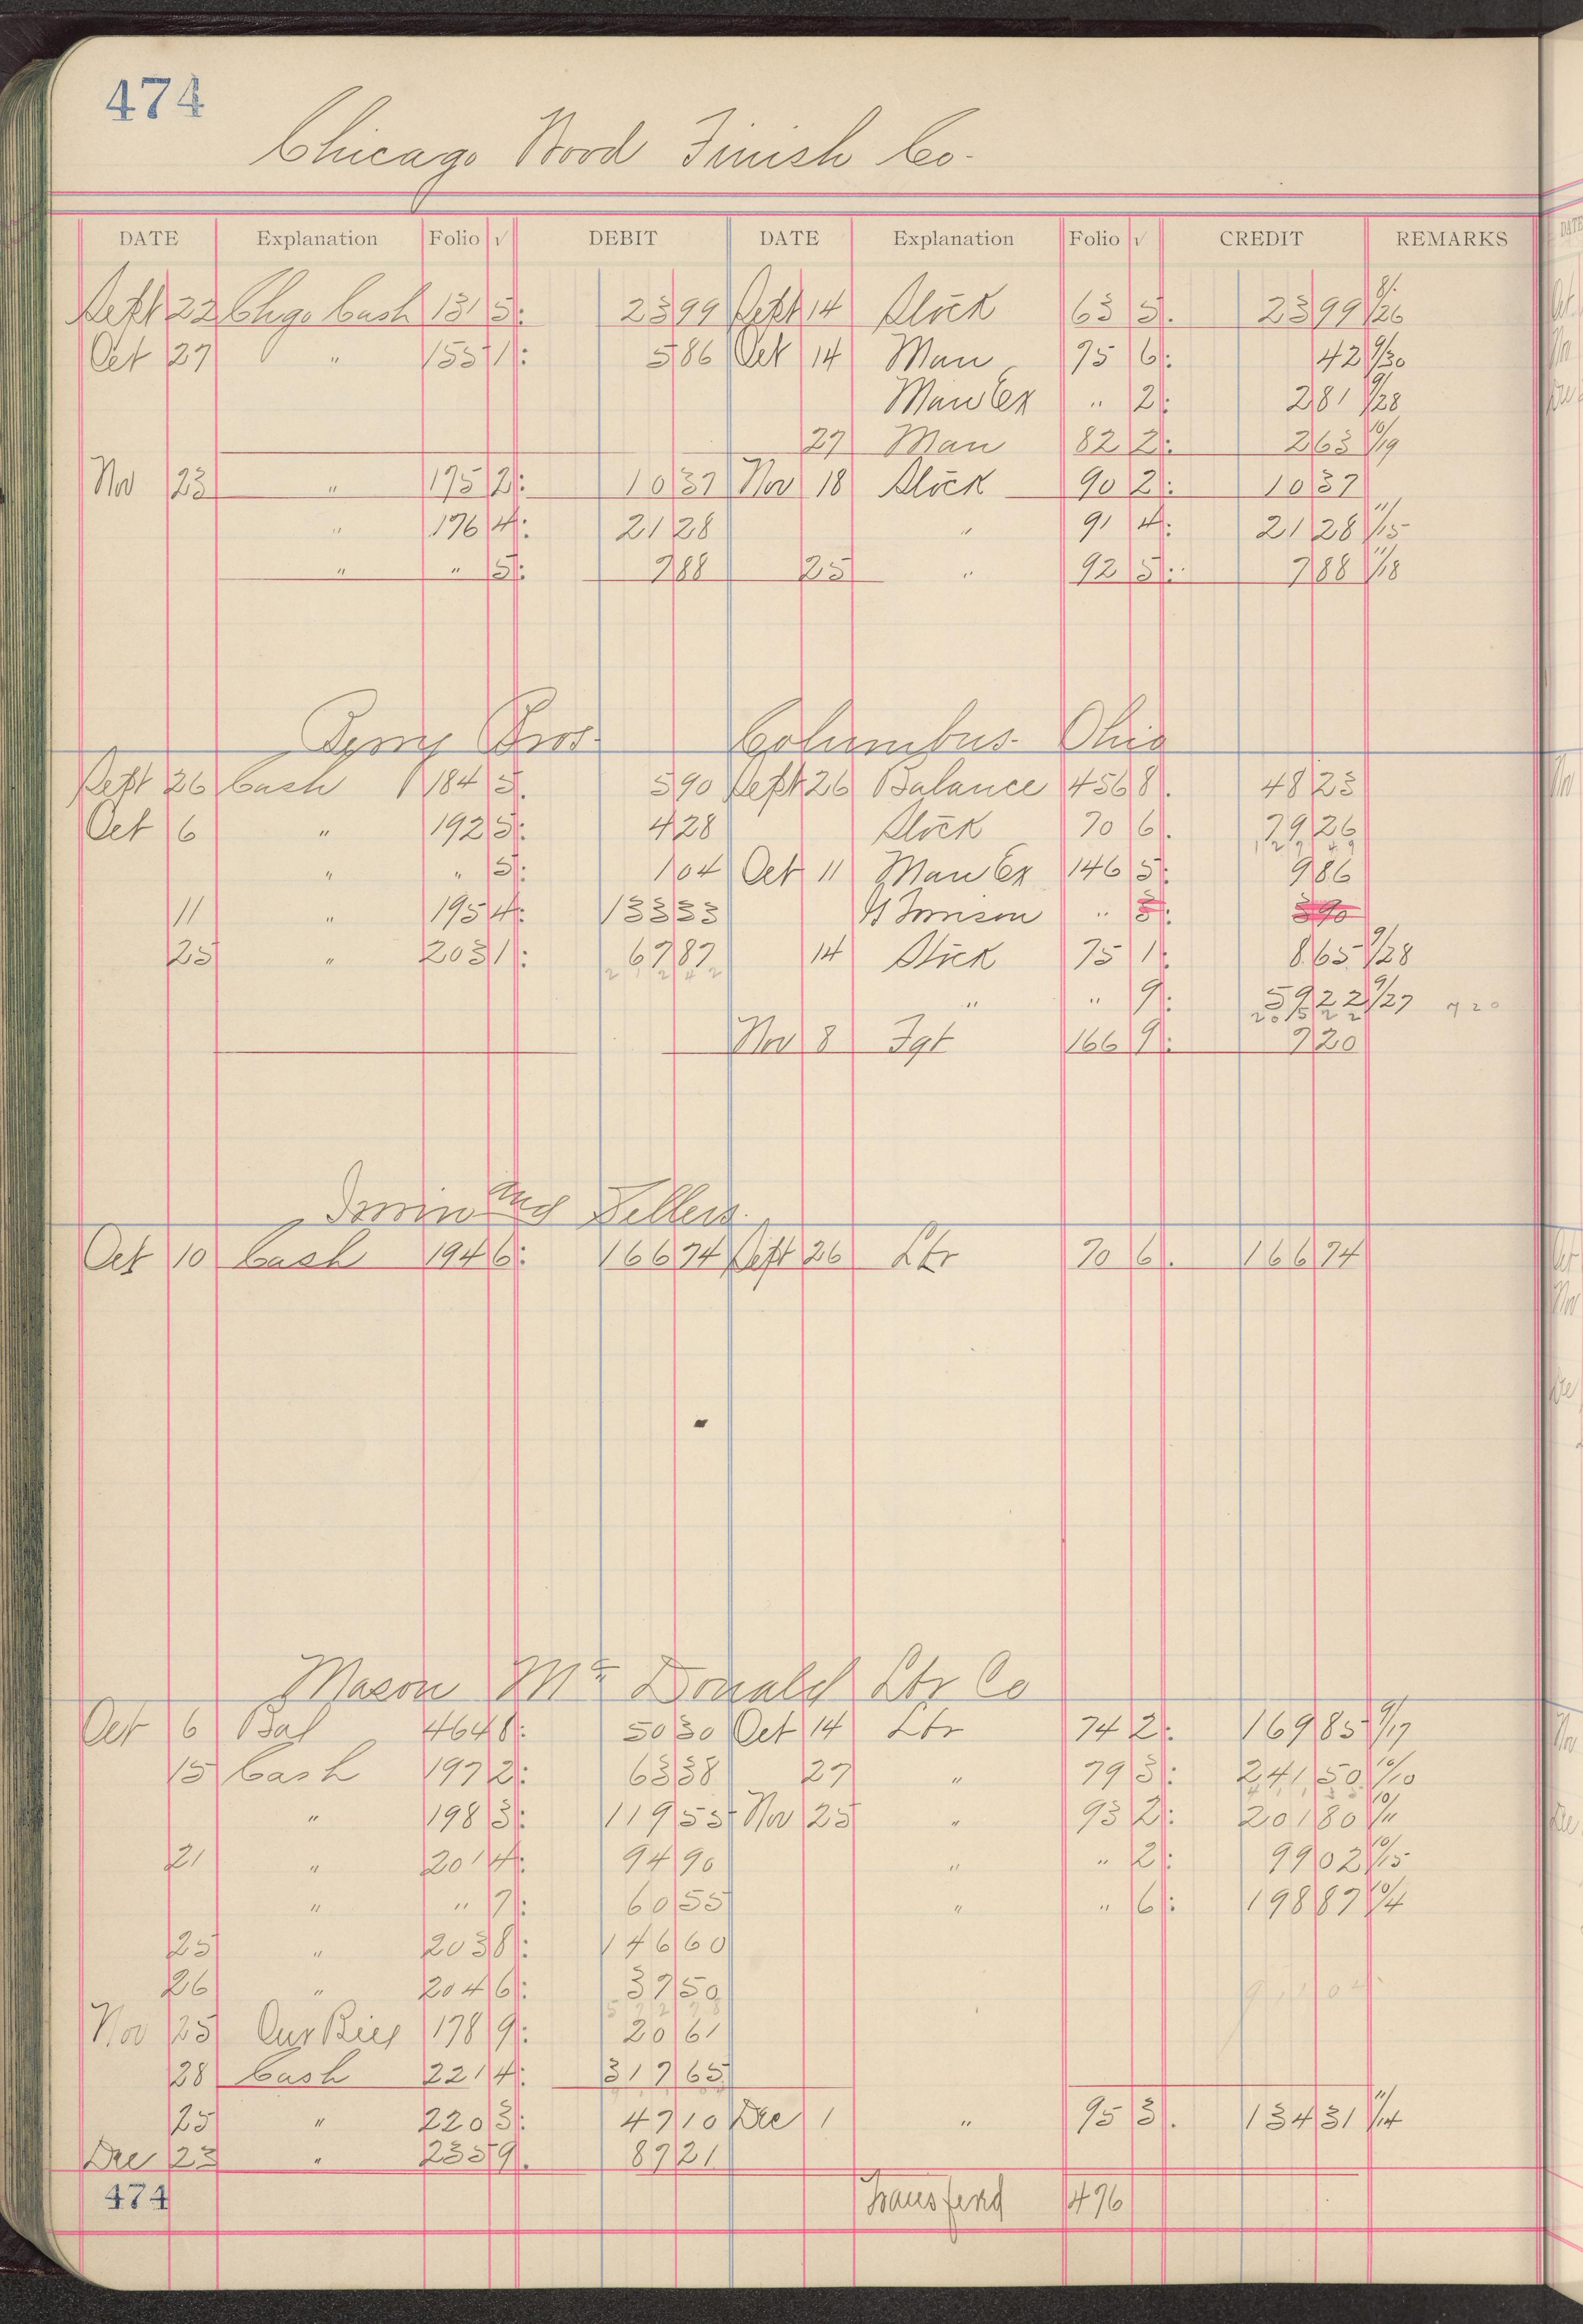 474
Chicago Wood Finish Co.
DATE Explanation Folio √ DEBIT DATE Explanation Folio √ CREDIT REMARKS
Sept 22 Chgo Cash 131 5: 23 99 Sept 14 Stock 63 5. 23 99 8/26
Oct 27 " 155 1: 5 86 Oct 14 Man 75 6: 42 9/30
Man Ex " 2: 2 81 9/28
27 Man 82 2: 2 63 10/19
Nov 23 " 175 2: 10 37 Nov 18 Stock 90 2: 10 37
" 176 4: 21 28 " 91 4: 21 28 11/15
" " 5: 7 88 25 " 92 5: 7 88 11/18
Bros. Columbus Ohio
Sept 26 Cash 184 5. 5 90 Sept 26 Balance 456 8. 48 23
Oct 6 " 192 5: 4 28 Stock 70 6. 79 26
" " 5: 1 04 Oct 11 Man Ex 146 5: 9 86
11 " 195 4: 133 33 " 3: 3 90
25 " 203 1: 67 87 14 Stock 75 1: 8 65 9/28
" " 9: 59 22 9/27 7 20
Nov 8 Fgt 166 9: 7 20
Irwin and Sellers.
Oct 10 Cash 194 6: 166 74 Sept 26 Lbr 70 6. 166 74
Mason Mc Donald Lbr Co
Oct 6 Bal 464 8: 50 30 Oct 14 Lbr 74 2: 169 85 9/17
15 Cash 197 2: 63 38 27 " 79 3: 241 50 10/10
" 198 3: 119 55 Nov 25 " 93 2: 201 80 10/11
21 " 201 4: 94 90 " " 2: 99 02 10/15
" " 7: 60 55 " " 6: 198 87 10/4
25 " 203 8: 146 60
26 " 204 6: 37 50
Nov 25 Our 178 9: 20 61
28 Cash 221 4: 317 65
25 " 220 3: 47 10 Dec 1 " 95 3. 134 31 11/14
Dec 23 " 235 9. 87 21
474 Transferd 476